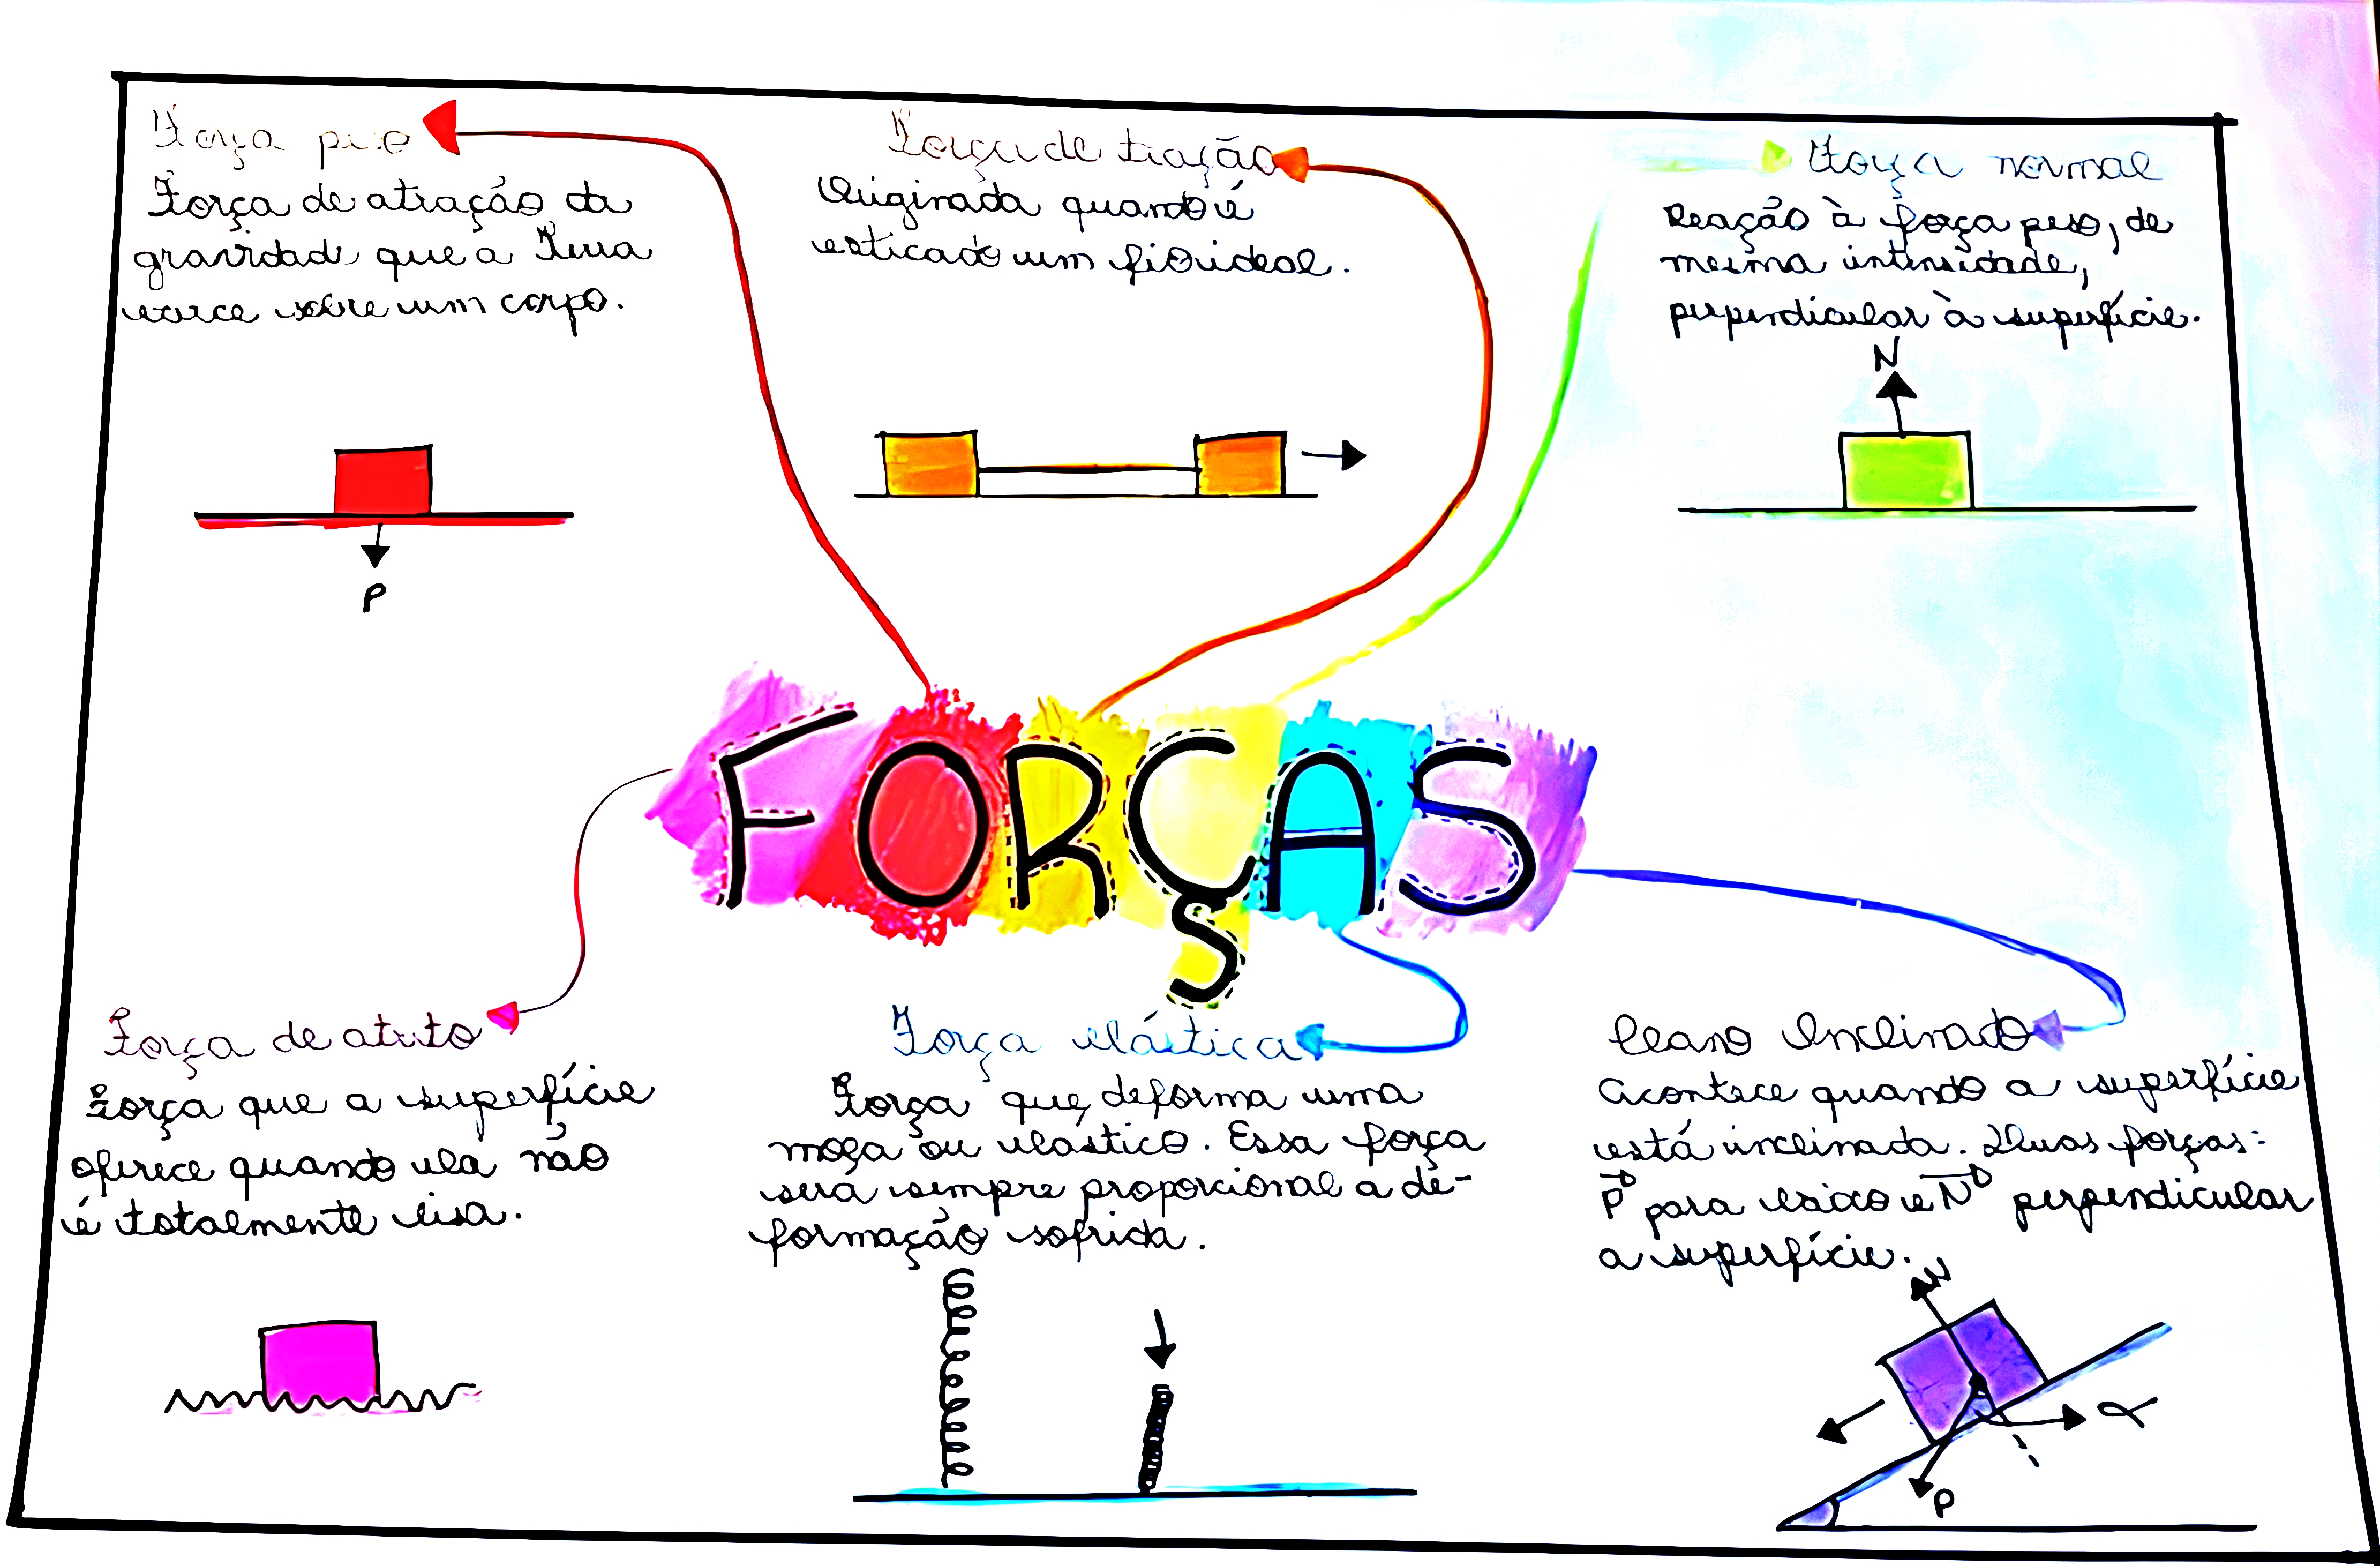 Força peso
Força de atração da
gravidade que a Terra
exerce sobre um corpo.
P
Força de tração
Originada quando é
esticado um fio ideal.
Força normal
Reação à força peso, de
mesma intensidade,
perpendicular à superfície.
N
FORÇAS
Força de atrito
Força que a superfície
oferece quando ela não
é totalmente lisa.
Força elástica
Força que deforma uma
mola ou elástico. Essa força
será sempre proporcional a de-
formação sofrida.
Plano Inclinado
Acontece quando a superfície
está inclinada. Duas forças:
P para baixo e N perpendicular
a superfície.
N
α
P